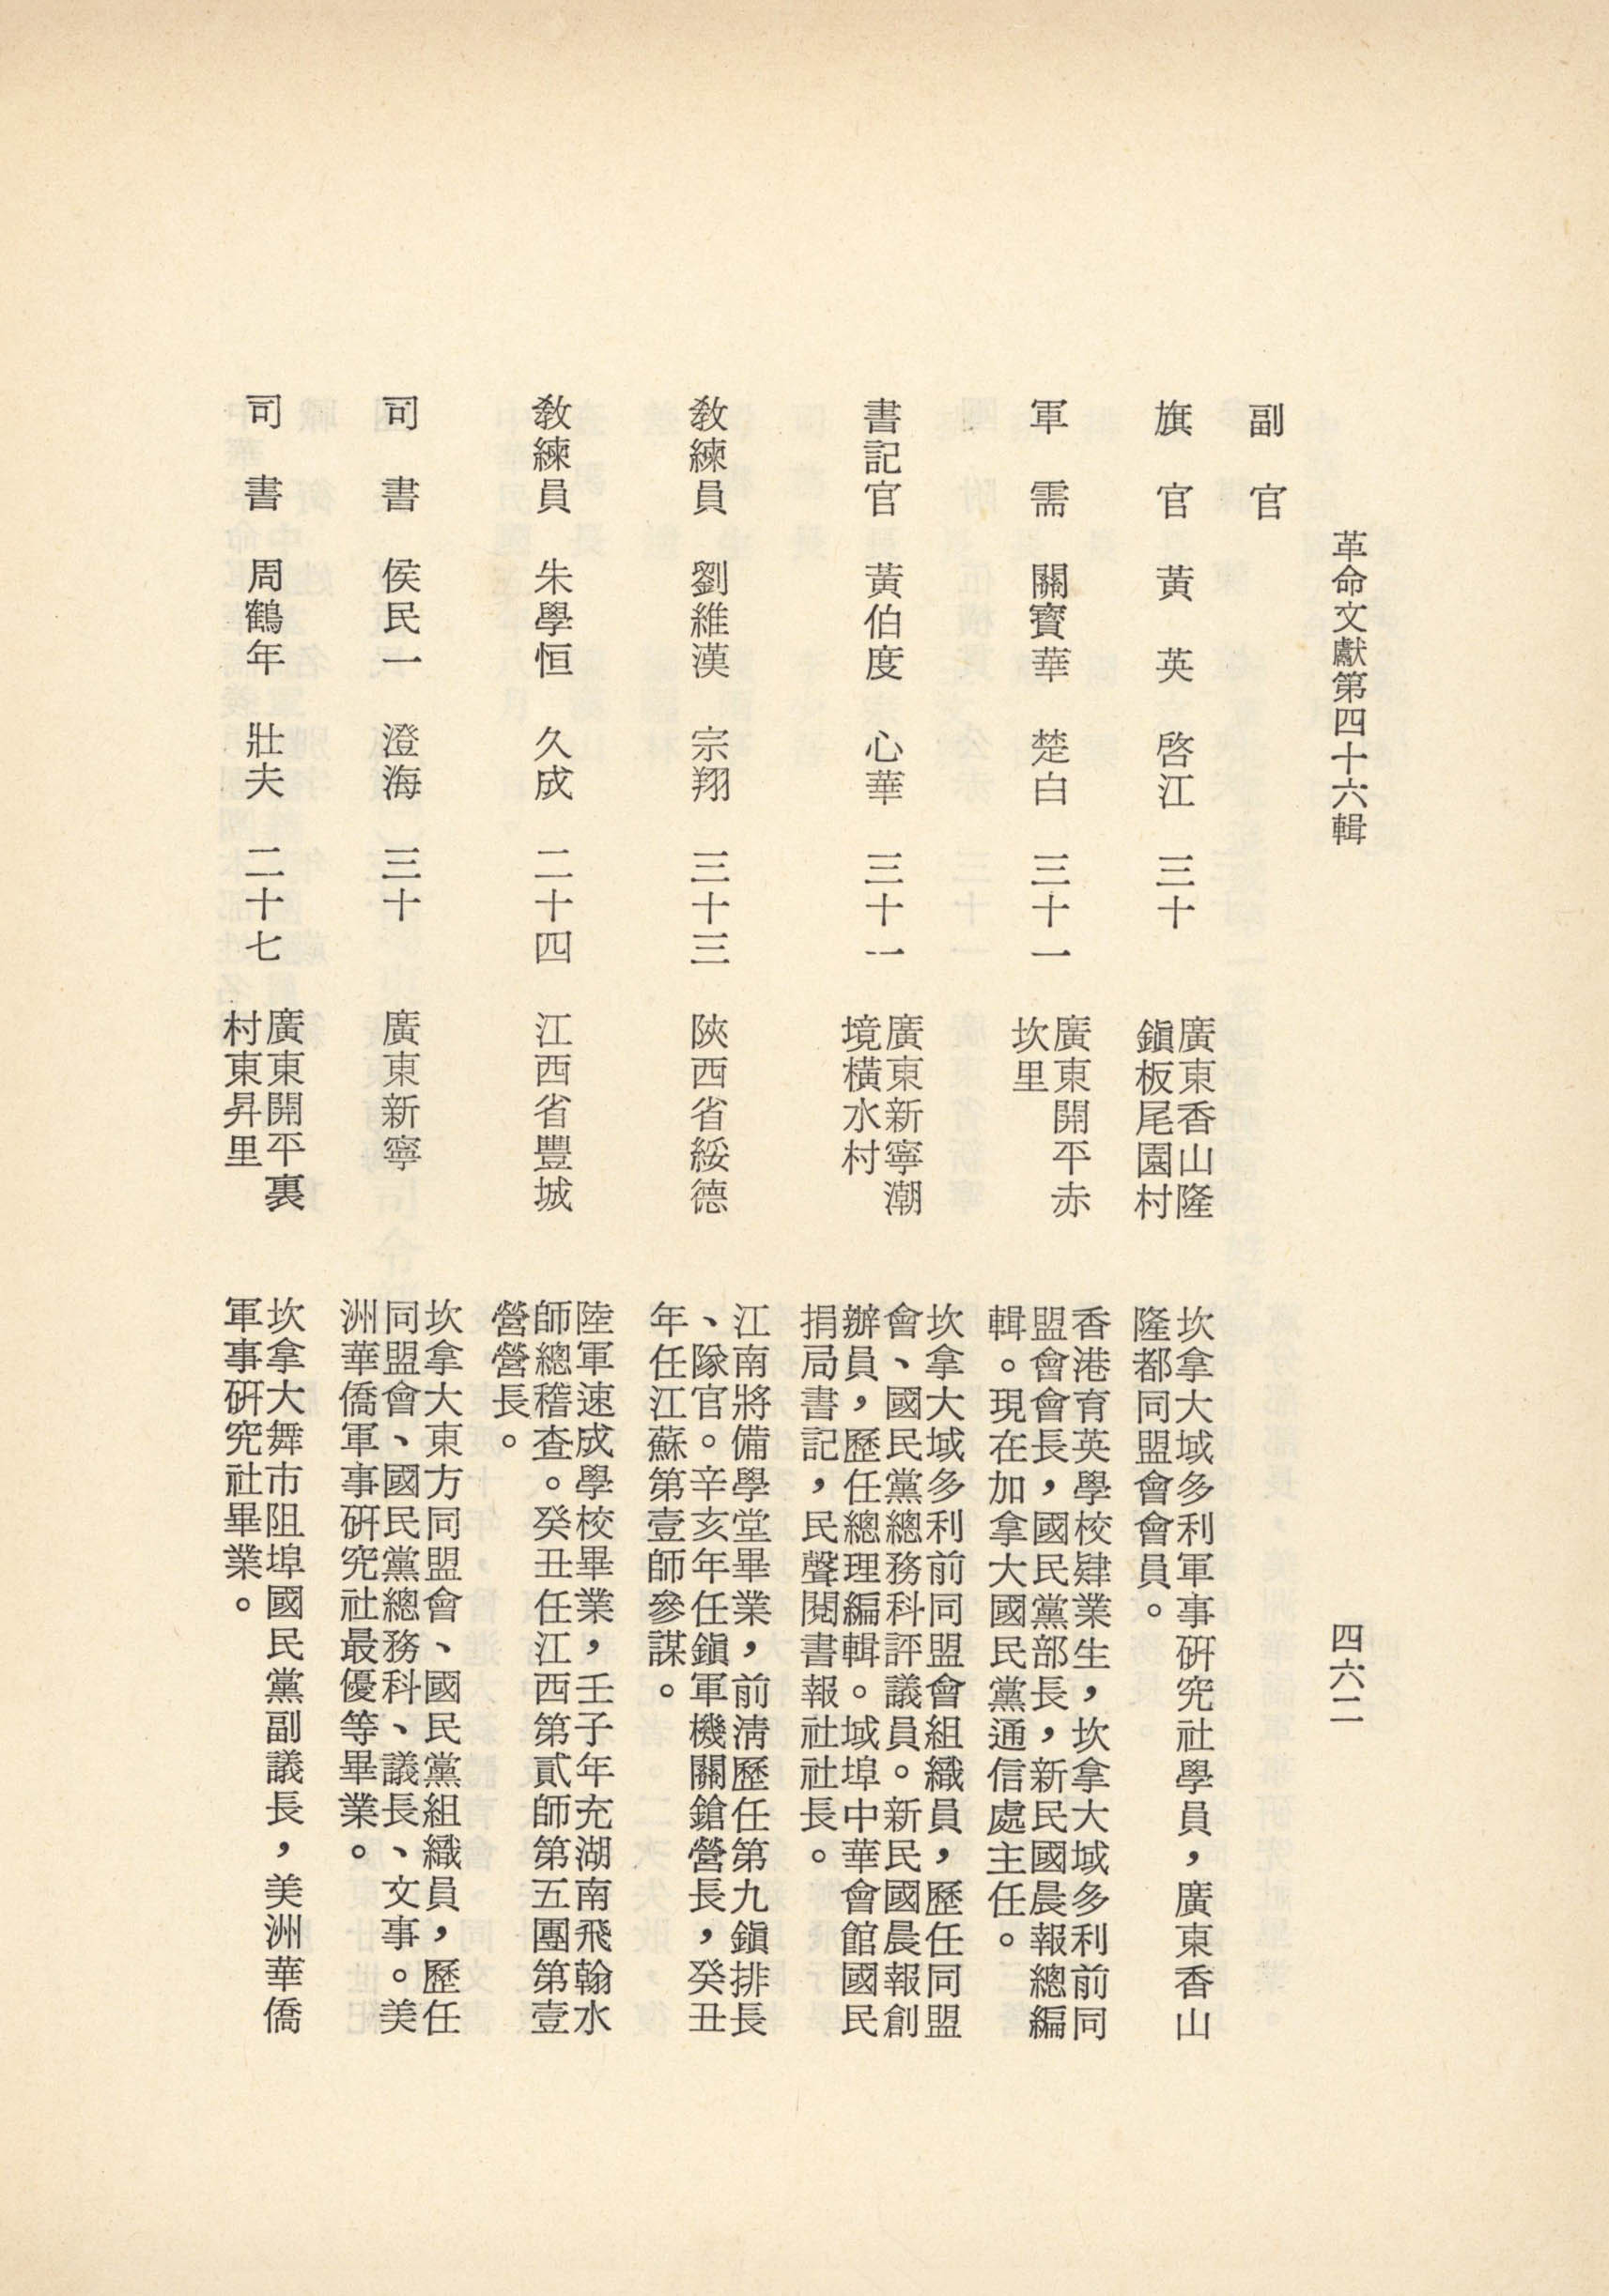 革命文獻第四十六輯
四六二
副官
旗官
黃英
啓江
三十
廣東香山隆
鎮板尾園村
坎拿大域多利軍事研究社學員，廣東香山
隆都同盟會會員。
軍需
關寶華
楚白
三十一
廣東開平赤
坎里
香港育英學校肄業生，坎拿大域多利前同
盟會會長，國民黨部長，新民國晨報總編
輯。現在加拿大國民黨通信處主任。
書記官
黃伯度
心華
三十一
廣東新寧潮
境橫水村
坎拿大域多利前同盟會組織員，歷任同盟
會、國民黨總務科評議員。新民國晨報創
辦員，歷任總理編輯。域埠中華會館國民
捐局書記，民聲閱書報社社長。
教練員
劉維漢
宗翔
三十三
陝西省綏德
江南將備學堂畢業，前清歷任第九鎮排長
、隊官。辛亥年任鎮軍機關鎗營長，癸丑
年任江蘇第壹師參謀。
教練員
朱學恒
久成
二十四
江西省豐城
陸軍速成學校畢業，壬子年充湖南飛翰水
師總稽查。癸丑任江西第貳師第五團第壹
營營長。
司書
侯民一
澄海
三十
廣東新寧
坎拿大東方同盟會、國民黨組織員，歷任
同盟會、國民黨總務科、議長、文事。美
洲華僑軍事研究社最優等畢業。
司書
周鶴年
壯夫
二十七
廣東開平裏
村東昇里
坎拿大舞市阻埠國民黨副議長，美洲華僑
軍事研究社畢業。